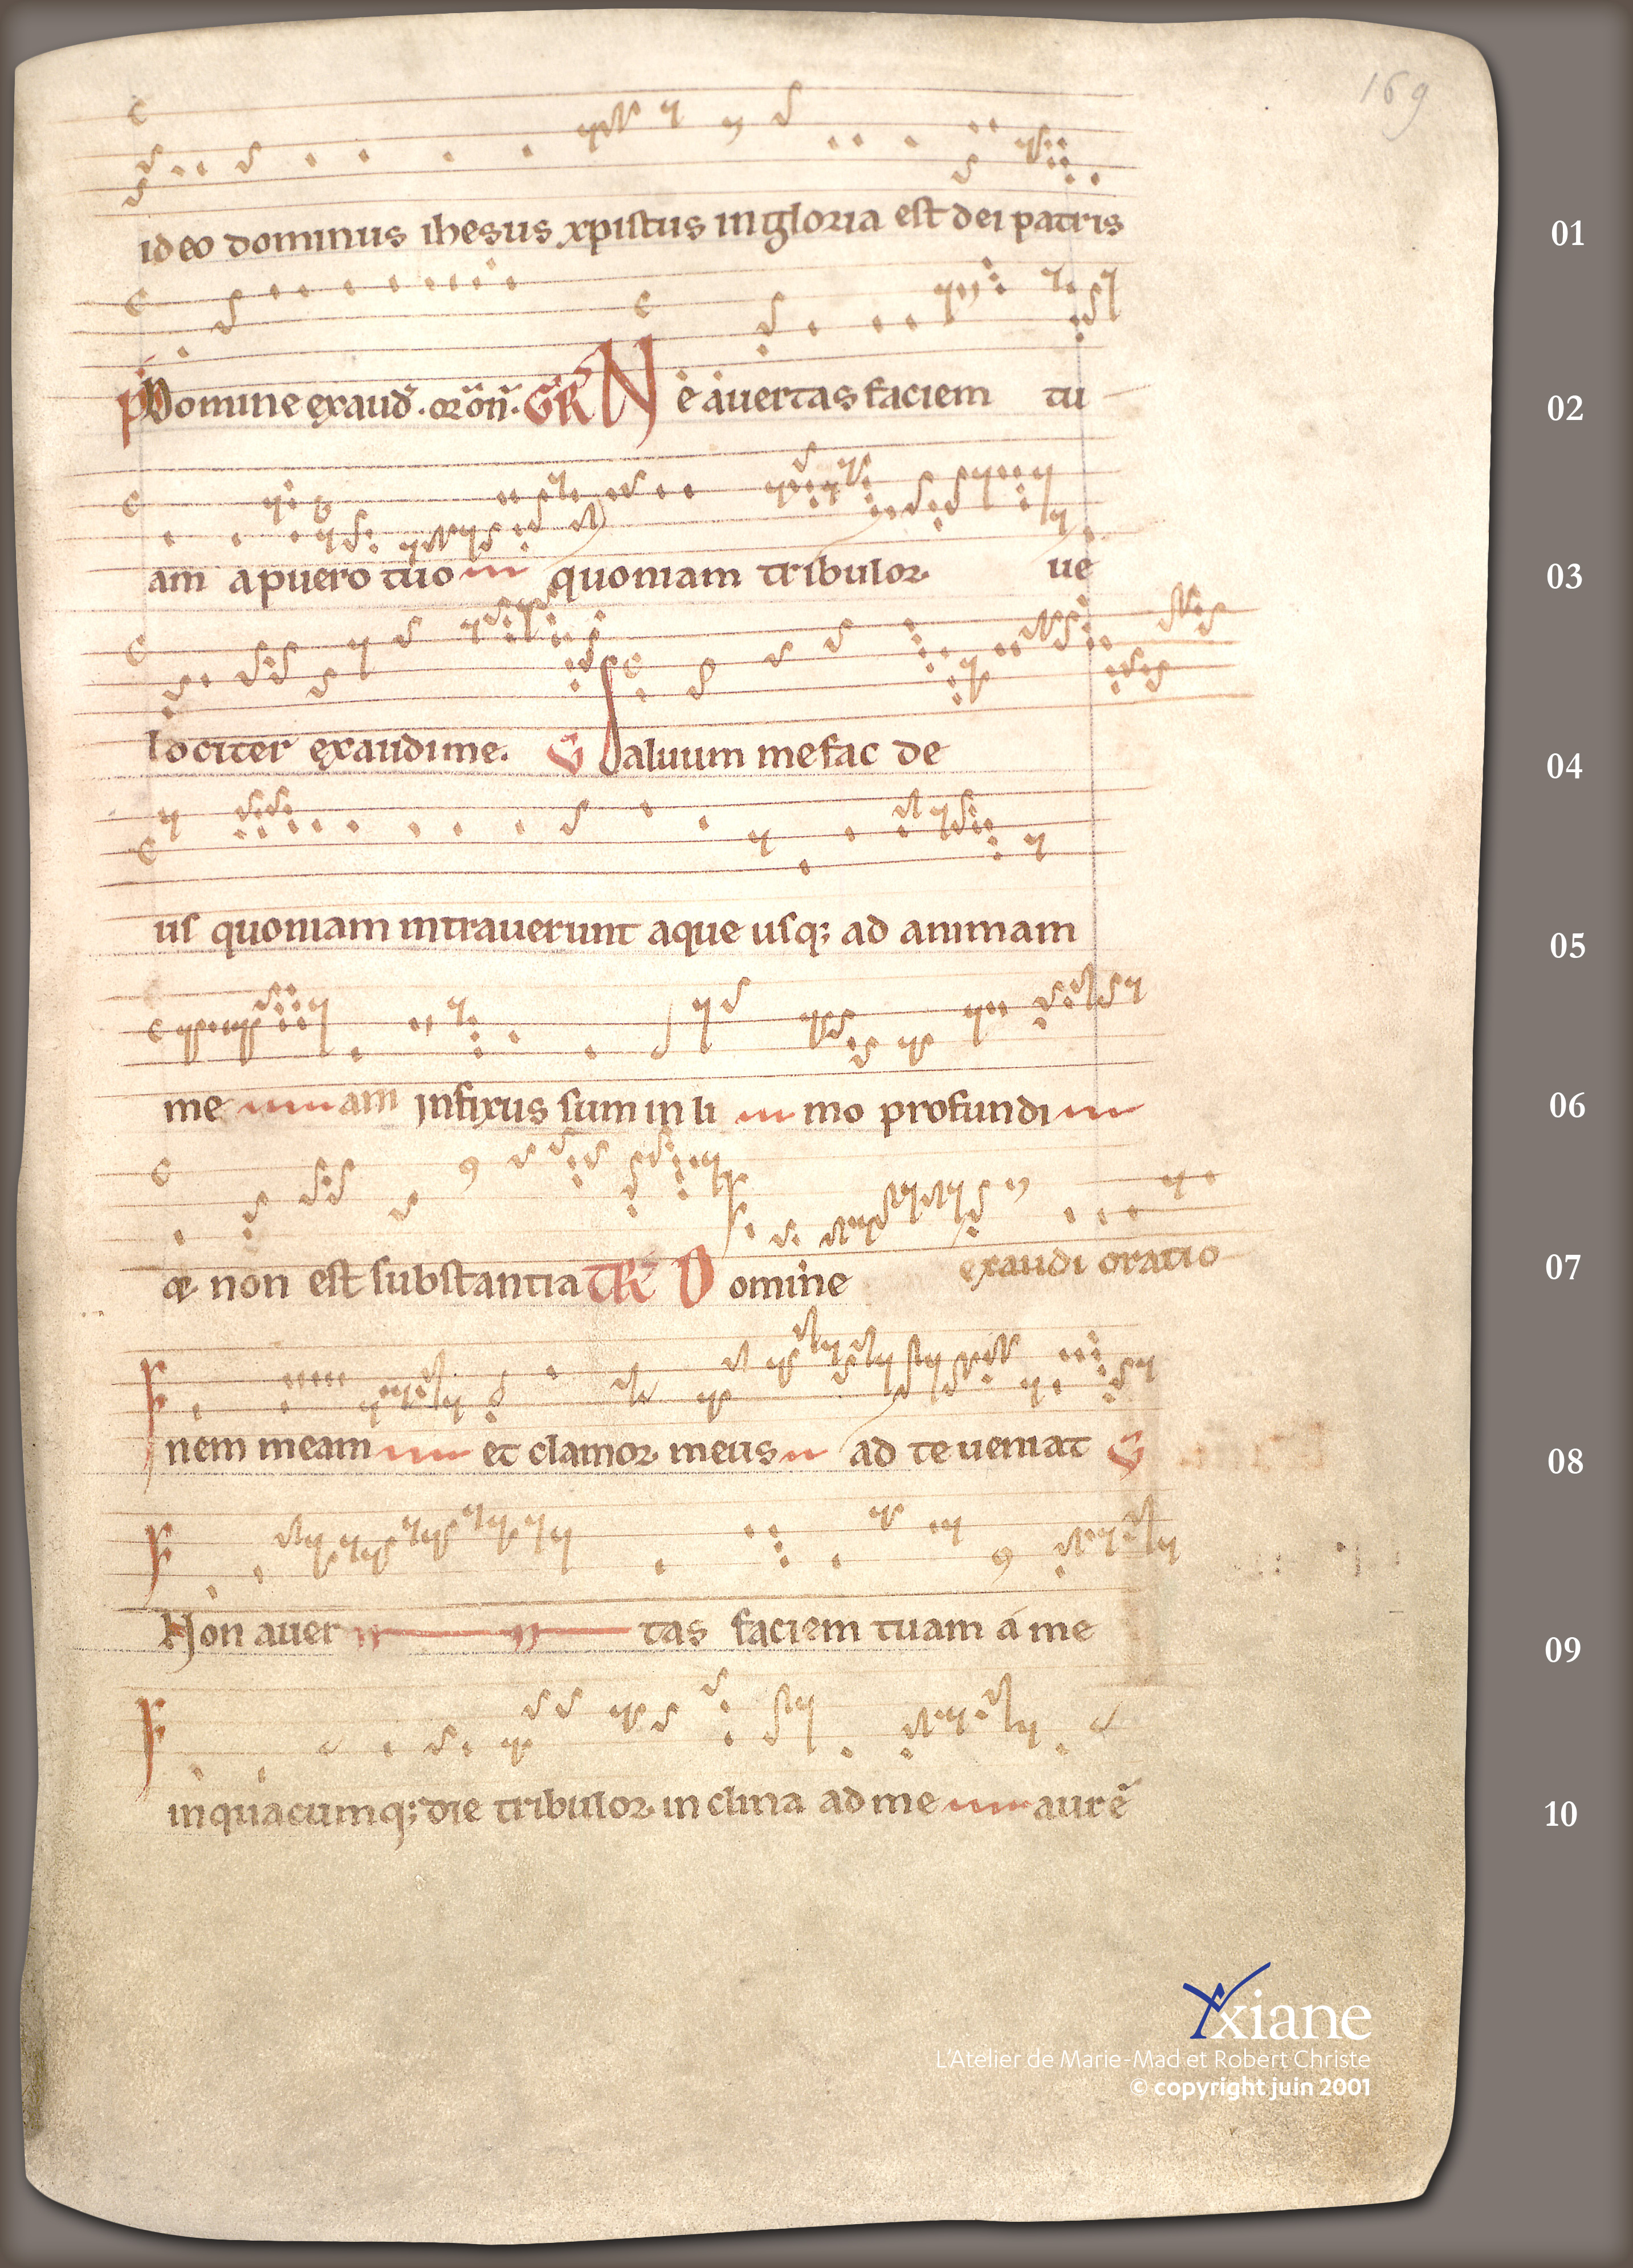 169
ideo dominus ihesus xpistus in gloria est dei patris
01
Ps Domine exaud. oron. GR Ne avertas faciem tu
02
am a puero tuo quoniam tribulor ve
03
lociter exaudi me. V Saluum me fac de
04
us quoniam intrauerunt aque usq; ad animam
05
me am infixus sum in li mo profundi
06
& non est substantia TR Domine exaudi oratio
07
nem meam et clamor meus ad te ueniat V
08
Non auer tas faciem tuam a me
09
in quacumq; die tribulor inclina ad me aurē
10
xiane
L'Atelier de Marie-Mad et Robert Christe
© copyright juin 2001